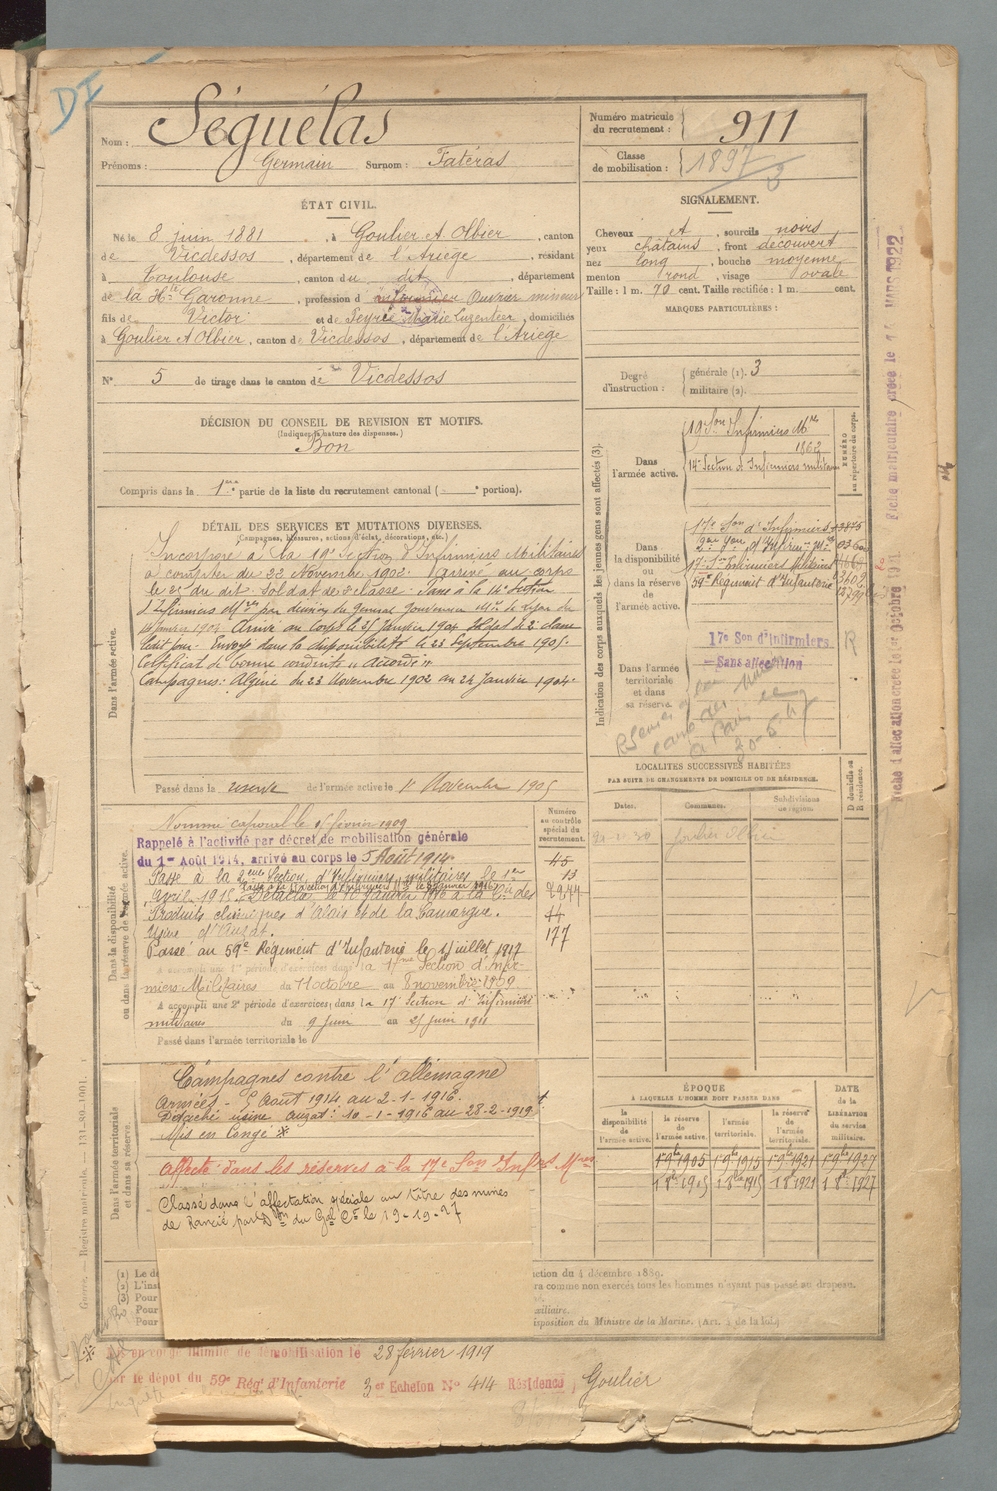 DI
Nom : Séguélas
Prénoms : Germain Surnom : Fatéras
Numéro matricule du recrutement : 911
Classe de mobilisation : 1897
ÉTAT CIVIL.
Né le 8 juin 1881, à Goulier et Olbier, canton
de Vicdessos, département de l'Ariège, résidant
à Toulouse, canton du dit, département
de la Hte Garonne, profession d'infirmier Ouvrier mineur
fils de Victor et de Peyre Marie Luzentier, domiciliés
à Goulier et Olbier, canton de Vicdessos, département de l'Ariège
N° 5 de tirage dans le canton de Vicdessos
SIGNALEMENT.
Cheveux et, sourcils noirs
yeux châtains, front découvert
nez long, bouche moyenne
menton rond, visage ovale
Taille : 1 m. 70 cent. Taille rectifiée : 1 m. cent.
MARQUES PARTICULIÈRES :
Degré d'instruction : générale (1). 3
militaire (2).
DÉCISION DU CONSEIL DE REVISION ET MOTIFS.
(Indiquer la nature des dispenses.)
Bon
Compris dans la 1re partie de la liste du recrutement cantonal ( - portion).
DÉTAIL DES SERVICES ET MUTATIONS DIVERSES.
(Campagnes, blessures, actions d'éclat, décorations, etc.)
Dans l'armée active.
Incorporé à la 19e Section d'Infirmiers Militaires
à compter du 22 Novembre 1902. Arrivé au corps
le 23 du dit. Soldat de 2e classe. Passé à la 14e Section
d'Infirmiers Mres par décision du Général Gouverneur Mre de Lyon du
14 Janvier 1904. Arrivé au Corps le 25 Janvier 1904. Soldat de 2e classe
le dit jour. Envoyé dans la disponibilité le 23 Septembre 1905.
Certificat de bonne conduite "accordé"
Campagnes : Algérie du 23 Novembre 1902 au 24 Janvier 1904
Passé dans la réserve de l'armée active le 1er Novembre 1905
Indication des corps auxquels les jeunes gens sont affectés (3).
NUMÉRO au répertoire du corps.
Dans l'armée active.
19e Son Infirmiers Mres
1862
14e Section d'Infirmiers militaires
Dans la disponibilité ou dans la réserve de l'armée active.
17e Son d'Infirmiers
17e Son Infirmiers Militaires
59e Régiment d'Infanterie
Dans l'armée territoriale et dans sa réserve.
17e Son d'Infirmiers
Sans affectation
R
LOCALITÉS SUCCESSIVES HABITÉES
PAR SUITE DE CHANGEMENTS DE DOMICILE OU DE RÉSIDENCE.
Dates. Communes. Subdivisions de région. D domicile ou R résidence.
Goulier Olbier
Fiche matriculaire créée le MARS 1922
Dans la disponibilité ou dans la réserve de l'armée active.
Numéro au contrôle spécial du recrutement.
Nommé caporal le 15 février 1909
Rappelé à l'activité par décret de mobilisation générale
du 1er Août 1914, arrivé au corps le 5 Août 1914
Passé à la 9eme Section d'Infirmiers militaires le 1er
Avril 1915. Détaché le 10 Janvier 1916 à la Cie des
Produits chimiques d'Alais et de la Camargue.
Usine d'Auzat.
Passé au 59e Régiment d'Infanterie le 1 juillet 1917
45
13
2977
44
177
A accompli une 1re période d'exercices dans la 17me Section d'Infir-
miers Militaires du 11 octobre au 8 novembre 1909
A accompli une 2e période d'exercices dans la 17 Section d'Infirmiers
militaires du 9 juin au 25 juin 1911
Passé dans l'armée territoriale le
Dans l'armée territoriale et dans sa réserve.
Campagnes contre l'allemagne
Armées - 5 Aout 1914 au 2-1-1916.
Détaché usine Auzat : 10-1-1916 au 28-2-1919
Mis en Congé *
Affecté dans les réserves à la 17e Son Infrs Mres
Classé dans l'affectation spéciale au titre des mines
de Rancié par Don du Gal Ct le 19-10-27
ÉPOQUE
À LAQUELLE L'HOMME DOIT PASSER DANS
DATE de la LIBÉRATION du service militaire.
la disponibilité de l'armée active. la réserve de l'armée active. l'armée territoriale. la réserve de l'armée territoriale.
1 9bre 1905 1 9bre 1915 1 9bre 1921 1 9bre 1927
1 8bre 1915 1 8bre 1921 1 8bre 1927
ction du 4 décembre 1889.
ra comme non exercés tous les hommes n'ayant pas passé au drapeau.
uxiliaire.
isposition du Ministre de la Marine.
(1) Le dé
(2) L'inst
(3) Pour
Pour
Pour
Guerre. — Registre matricule. — 131-89-1901.
en congé illimité de démobilisation le 28 février 1919
le dépôt du 59e Rég. d'Infanterie 3 er Echelon N° 414 Résidence, Goulier